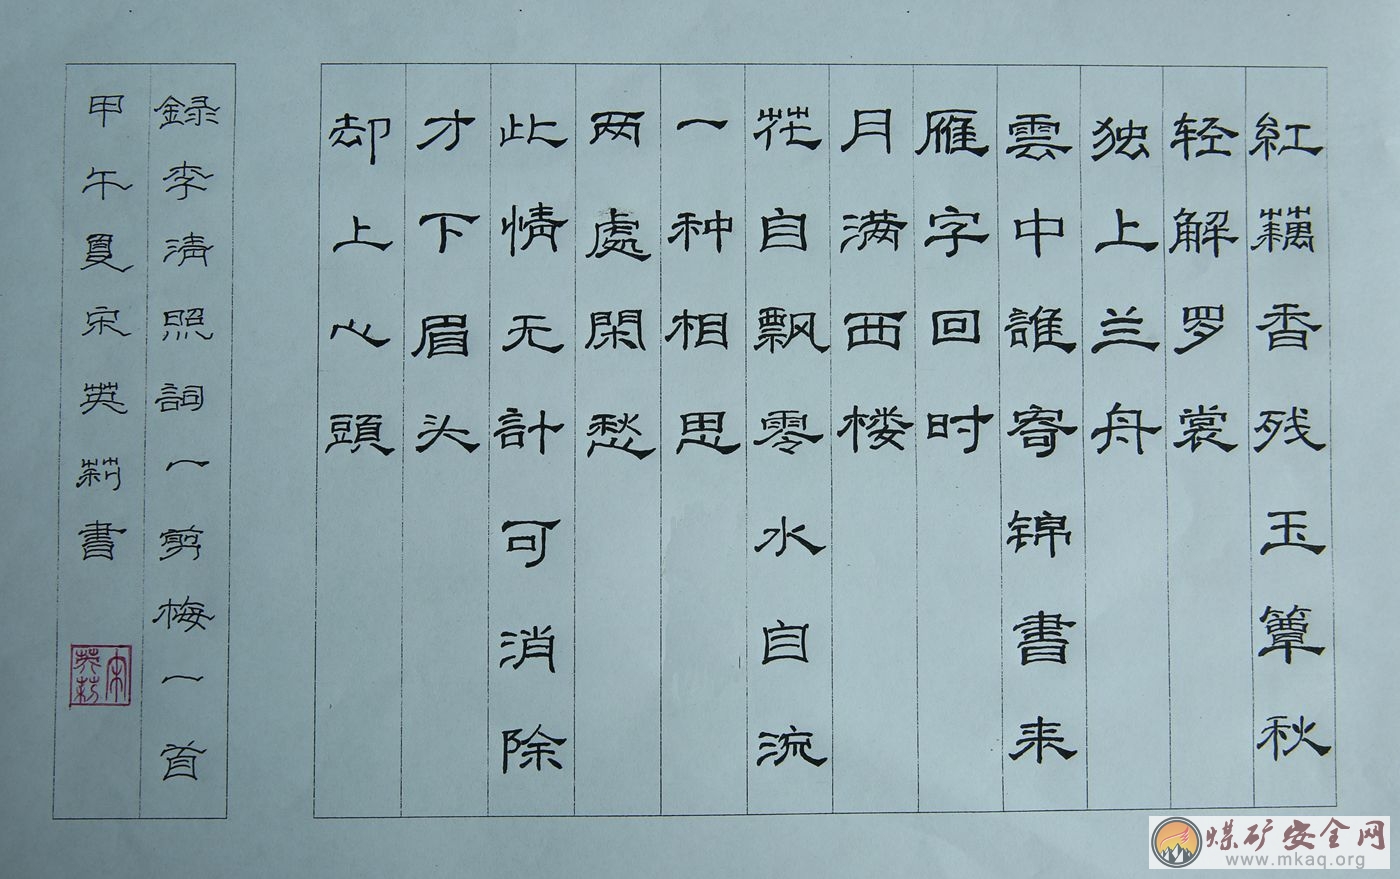 紅藕香残玉簟秋
轻解罗裳
独上兰舟
雲中誰寄锦書来
雁字回时
月满西楼
花自飘零水自流
一种相思
两處閑愁
此情无計可消除
才下眉头
却上心頭
録李清照詞一剪梅一首
甲午夏宋英莉書
宋英莉
煤矿安全网
www.mkaq.org